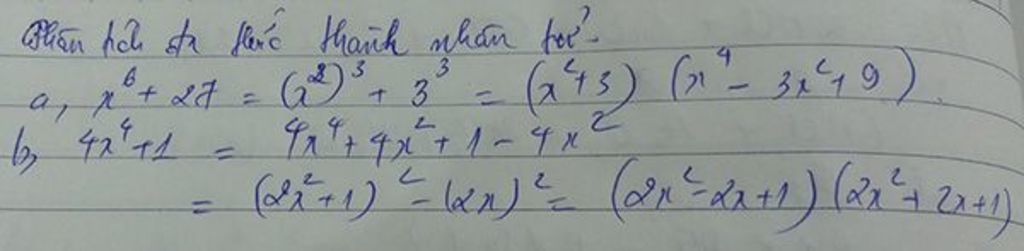 Phân tích đa thức thành nhân tử.
a, x⁶ + 27 = (x²)³ + 3³ = (x² + 3) (x⁴ - 3x² + 9)
b, 4x⁴ + 1 = 4x⁴ + 4x² + 1 - 4x²
= (2x² + 1)² - (2x)² = (2x² - 2x + 1) (2x² + 2x + 1)